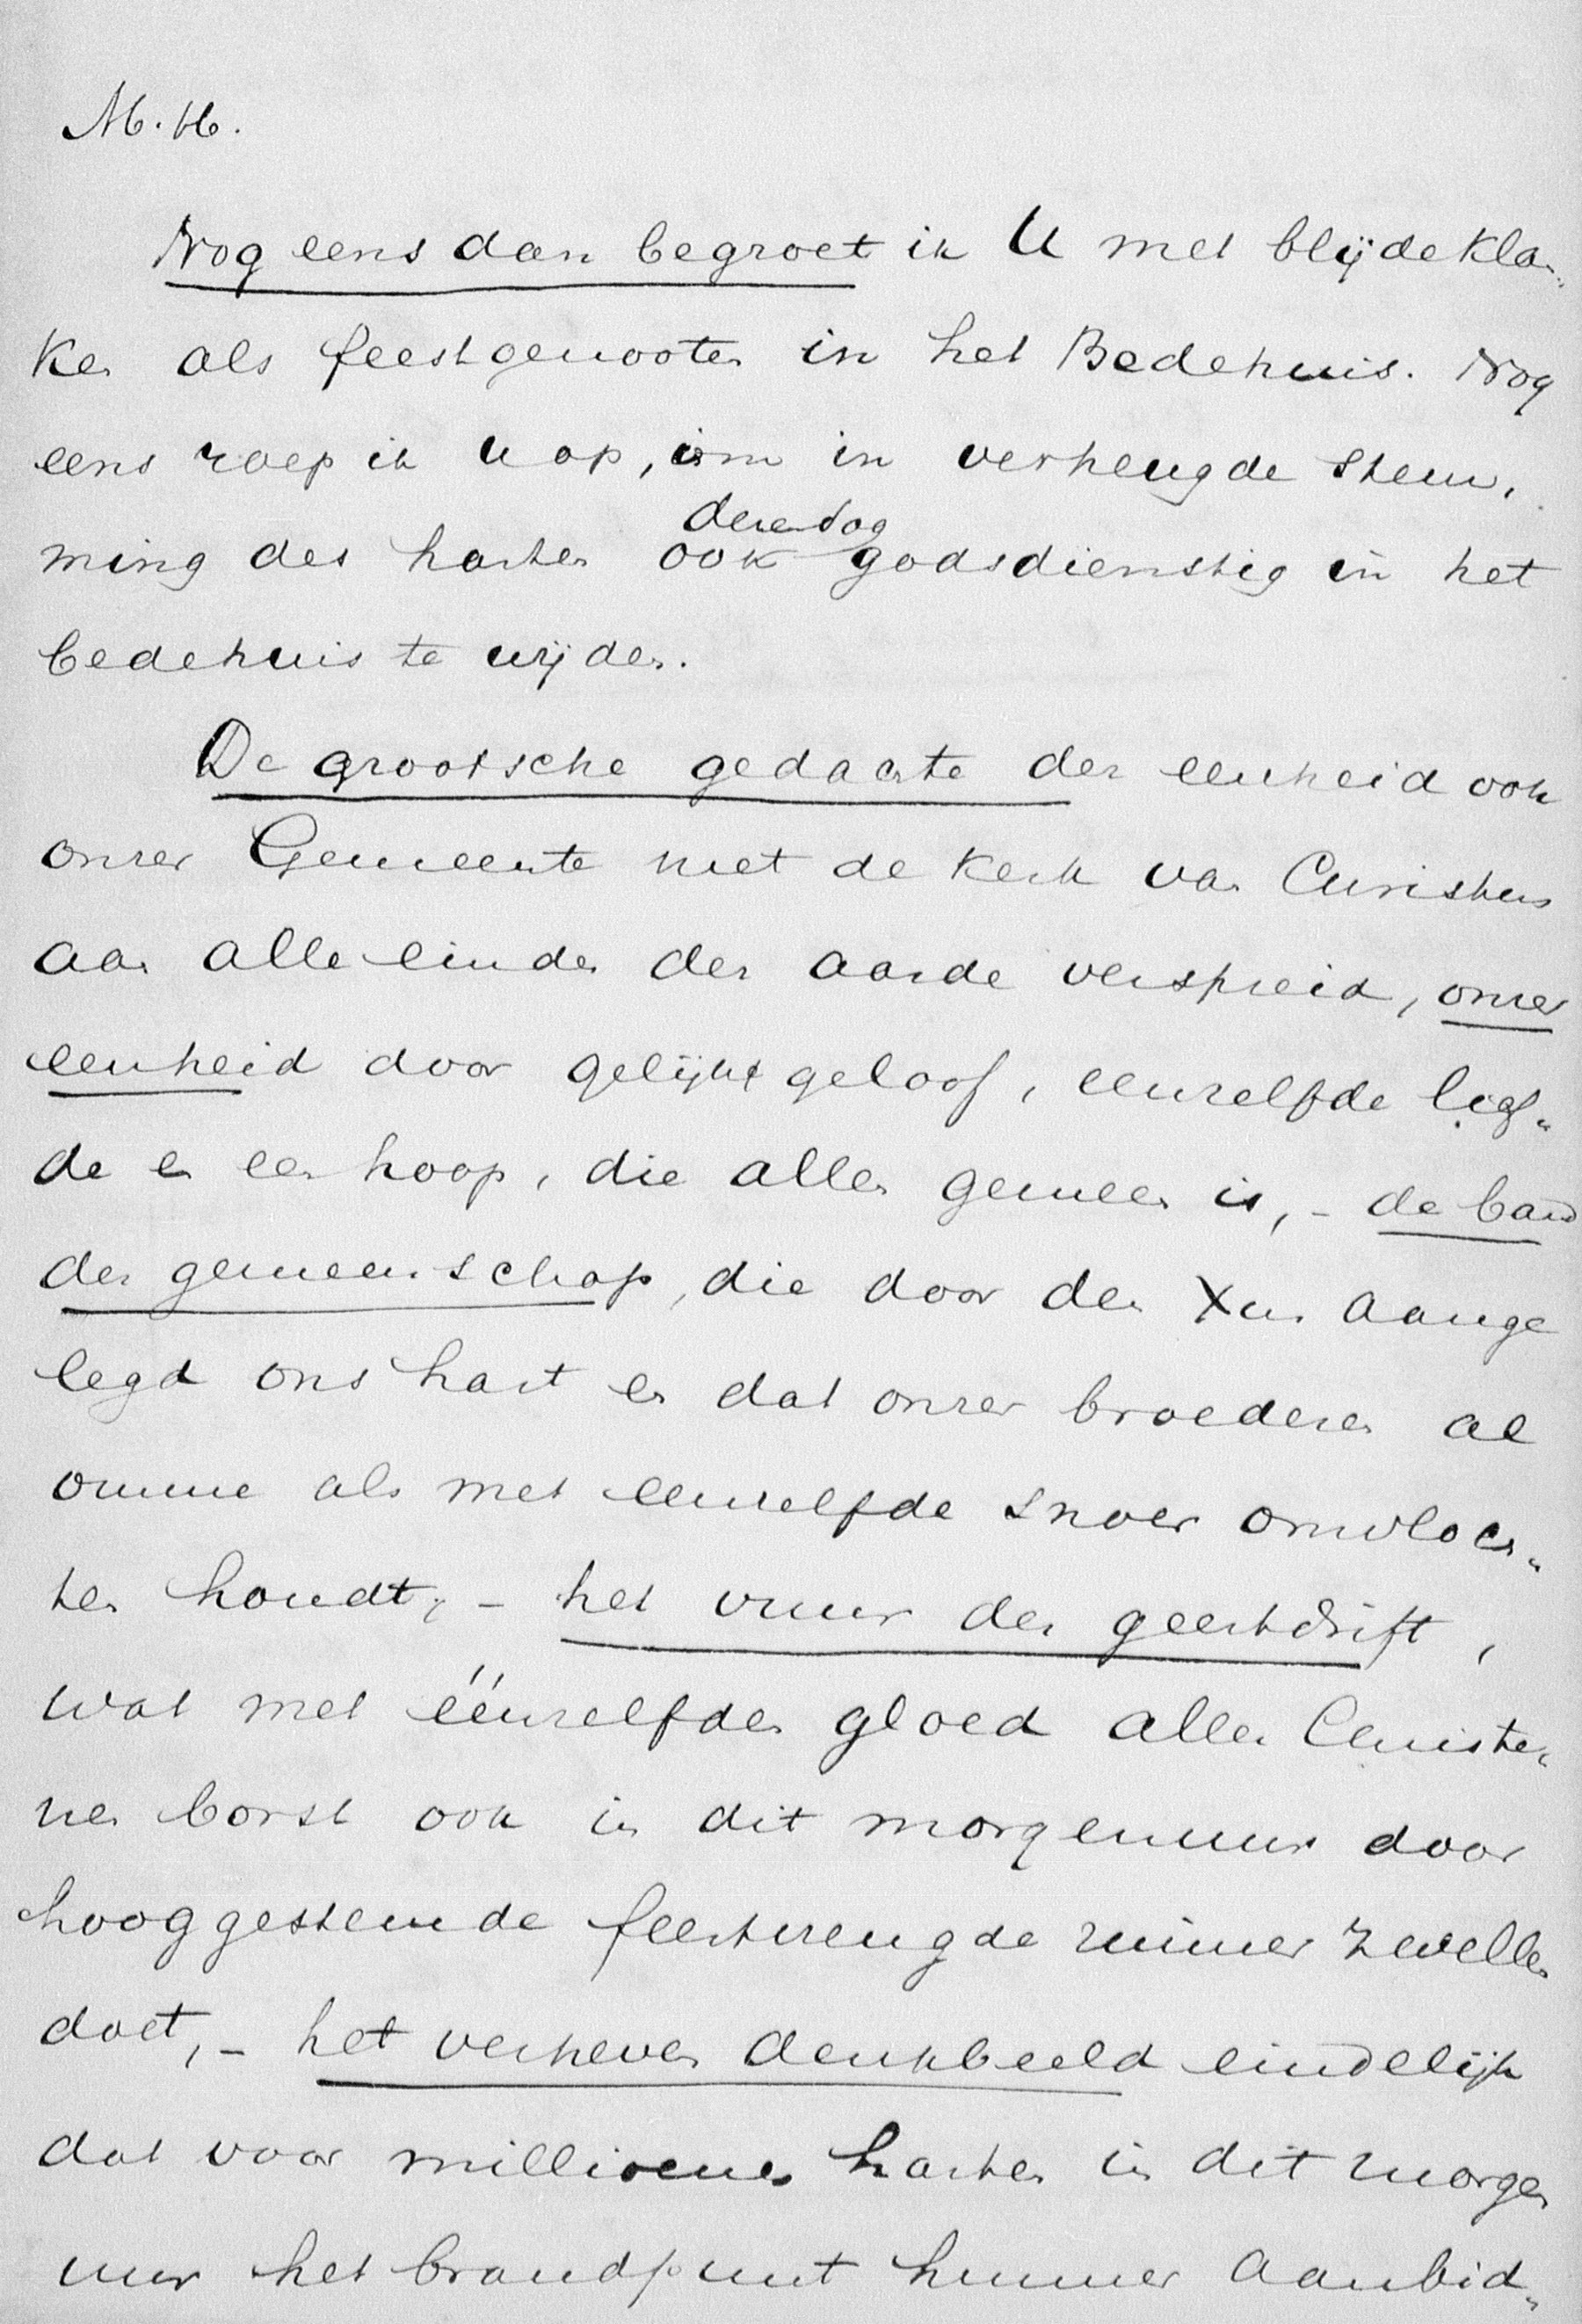 M.H.
Nog eens dan begroet ik U met blijde kla„
ken als feestgenooten in het Bedehuis. Nog
eens roep ik U op, om in verheugde stem„
dezen dag
ming des harten ook godsdienstig in het
bedehuis te wijden.
De grootsche gedachte der eenheid ook
onzer Gemeente met de Kerk van Christus
aan alle einden der aarde verspreid, onzer
eenheid door gelijk geloof, eenzelfde lief„
de en een hoop, die allen gemeen is, - de band
der gemeenschap, die door den Xus. aange
legd ons hart en dat onzer broederen al
omme als met eenzelfde snoer omvloch„
ten houdt, - het vuur der geestdrift,
wat met éénzelfden gloed aller Christe„
nen borst ook in dit morgenuur door
hooggestemde feestvreugde ruimer zwellen
doet, - het verheven denkbeeld eindelijk
dat voor millioenen harten in dit morgen
uur het brandpunt hunner aanbid„